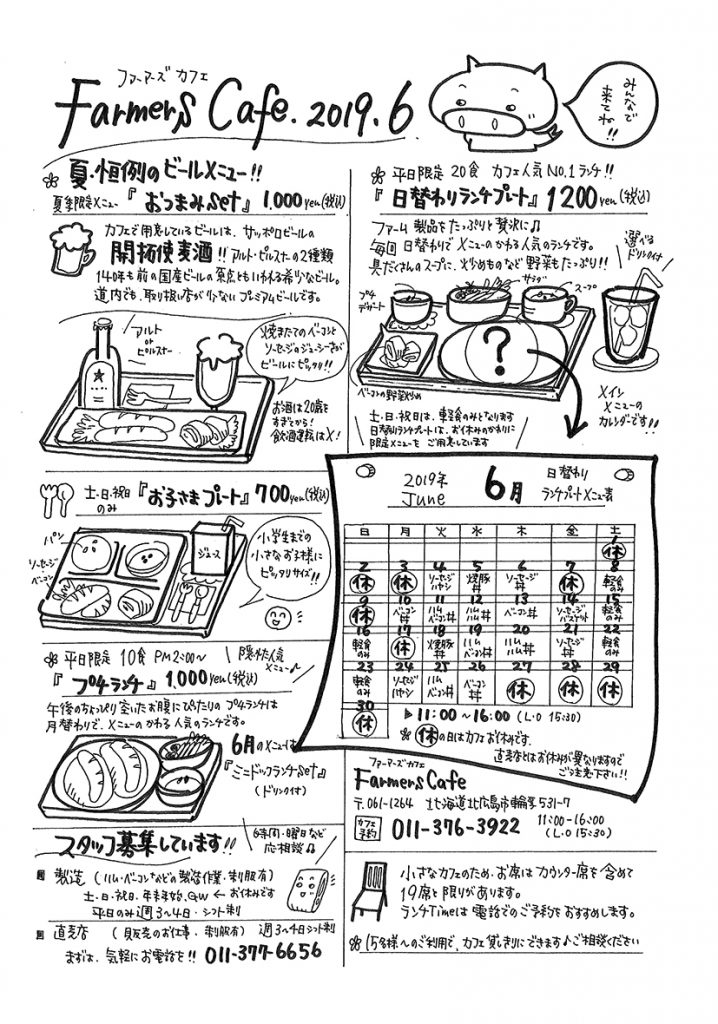 ファーマーズ カフェ
Farmers Cafe. 2019.6
みんなで
来てね!!
夏・恒例のビールメニュー!!
夏季限定メニュー『おつまみset』1,000yen(税込)
カフェで用意しているビールは、サッポロビールの
開拓使麦酒!! アルト・ピルスナーの2種類
140年も前の国産ビールの原点ともいわれる希少なビール。
道内でも、取り扱い店が少ないプレミアムビールです。
アルト
or
ピルスナー
焼きたてのベーコンと
ソーセージのジューシーさが
ビールにピッタリ!!
お酒は20歳を
すぎてから!
飲酒運転は×!
平日限定 20食 カフェ人気No.1ランチ!!
『日替わりランチプレート』1200yen(税込)
ファーム製品をたっぷりと贅沢に♫
毎回 日替わりでメニューのかわる人気のランチです。
具だくさんのスープに、炒めものなど野菜もたっぷり!!
選べる
ドリンク付
プチ
デザート
サラダ
スープ
?
ベーコンの野菜炒め
メイン
メニューの
カレンダーです!!
土・日・祝日は、軽食のみとなります
日替りランチプレートは、お休みのかわりに
限定メニューをご用意しています
土・日・祝日
のみ
『お子さまプレート』700yen(税込)
パン
ソーセージ・
ベーコン
ジュース
小学生までの
小さなお子様に
ピッタリサイズ!!
平日限定 10食 PM2:00〜
隠れた人気
メニュー♪
『プチランチ』1,000yen(税込)
午後のちょっぴり空いたお腹にぴたりのプチランチは
月替わりで、メニューのかわる人気のランチです。
6月のメニューは
『ミニドックランチset』
(ドリンク付)
2019年
June
6月
日替わり
ランチプレートメニュー表
日 月 火 水 木 金 土
1
休
2 3 4 5 6 7 8
休 休 ソーセージハヤシ 焼豚丼 ソーセージ丼 休 軽食のみ
9 10 11 12 13 14 15
休 ベーコン丼 ハムベーコン丼 ハムハム丼 ベーコン丼 ソーセージバスケット 軽食のみ
16 17 18 19 20 21 22
軽食のみ 休 焼豚丼 ソーセージ丼 ハムハム丼 ソーセージ丼 軽食のみ
23 24 25 26 27 28 29
軽食のみ ソーセージハヤシ ハムベーコン丼 ベーコン丼 休 休 休
30
休
▶11:00〜16:00 (L・O 15:30)
休の日はカフェお休みです。
直売店とはお休みが異なりますので
ご注意下さい!!
ファーマーズ カフェ
Farmers Cafe
〒061-1264 北海道北広島市輪厚531-7
カフェ
予約
011-376-3922
11:00-16:00
(L・O 15:30)
スタッフ募集しています!!
時間・曜日など
応相談♫
製造 (ハム・ベーコンなどの製造作業・制服有)
土・日・祝日、年末年始、GW ← お休みです
平日のみ週3〜4日・シフト制
直売店 (販売のお仕事・制服有) 週3〜4日シフト制
まずは、気軽にお電話を!! 011-377-6656
小さなカフェのため、お席はカウンター席を含めて
19席と限りがあります。
ランチTimeは電話でのご予約をおすすめします。
15名様〜のご利用で、カフェ貸しきりにできます♪ご相談ください